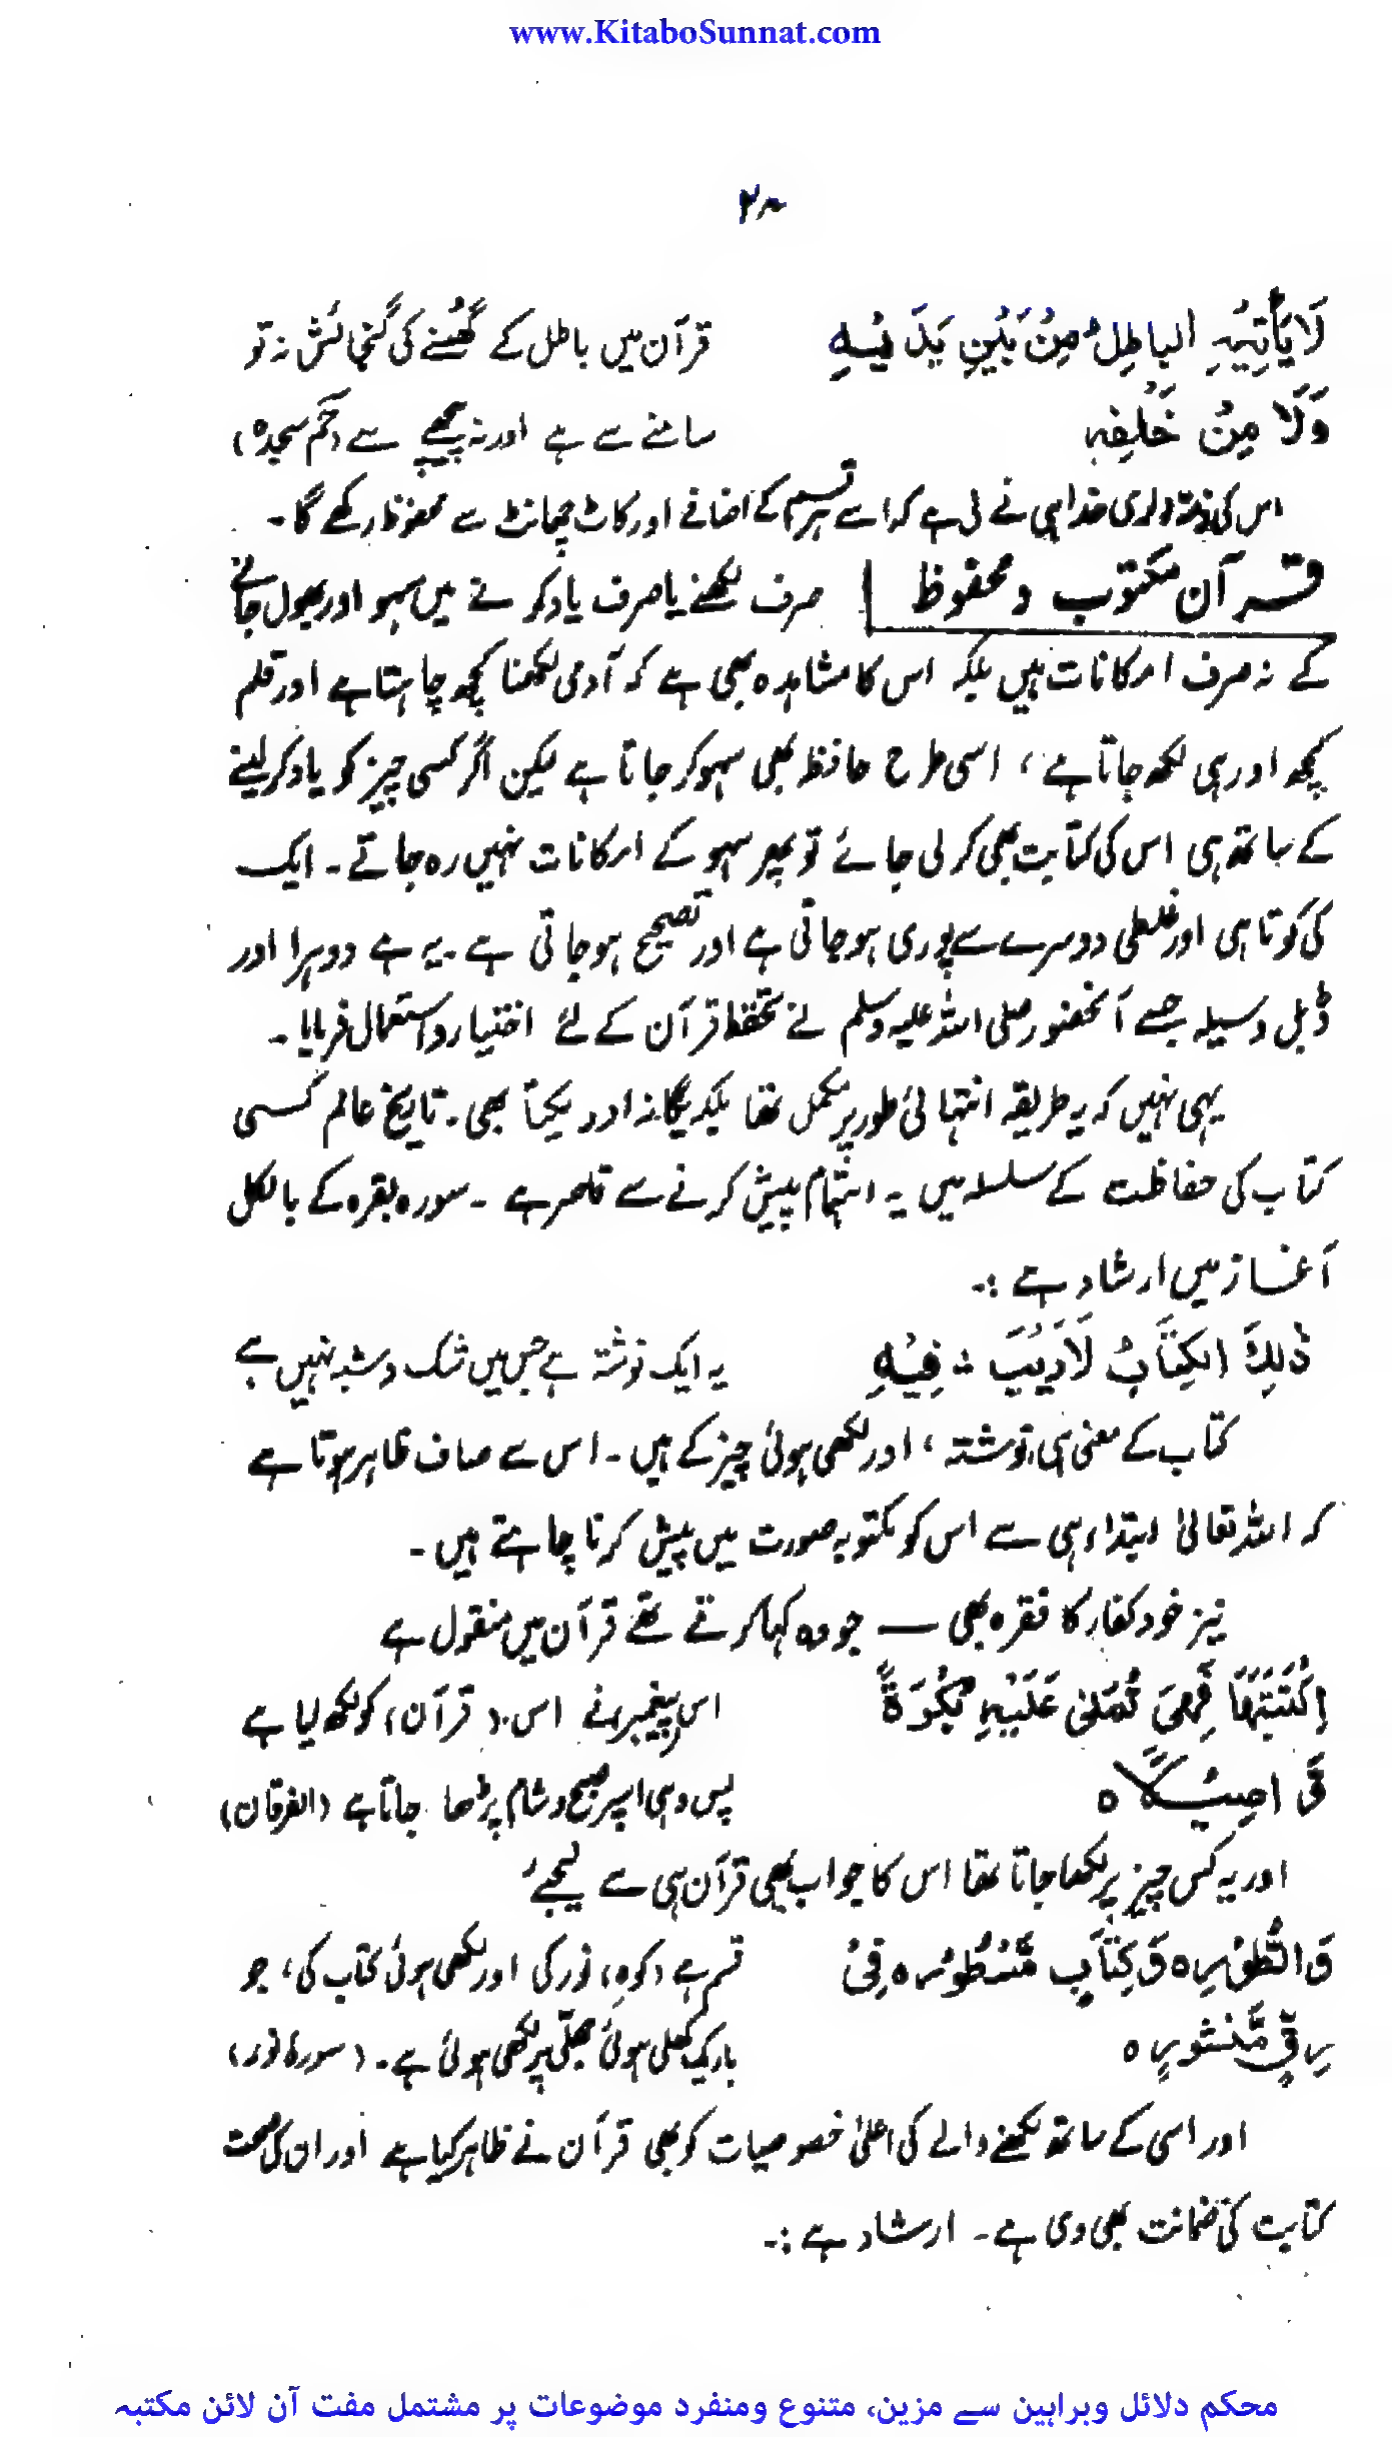 www.KitaboSunnat.com
۲۸
لَا يَأْتِيْهِ الباطِلُ مِنْ بَيْنِ يَدَيْهِ قرآن میں باطل کے گھُسنے کی گنجائش نہ تو
وَلَا مِنْ خَلْفِهٖ سامنے سے ہے اور نہ پیچھے سے (حٰم سجدہ)
اس کی ذمّہ داری خدا ہی نے لی ہے کہ اسے ہر قسم کے اضافے اور کاٹ چھانٹ سے محفوظ رکھے گا۔
قرآن مکتوب و محفوظ صرف لکھنے یا صرف یاد کرنے میں سہو اور بھول جانے
کے نہ صرف امکانات ہیں بلکہ اس کا مشاہدہ بھی ہے کہ آدمی لکھنا کچھ چاہتا ہے اور قلم
کچھ اور ہی لکھ جاتا ہے، اسی طرح حافظ بھی سہو کر جاتا ہے لیکن اگر کسی چیز کو یاد کر لینے
کے ساتھ ہی اس کی کتابت بھی کر لی جائے تو پھر سہو کے امکانات نہیں رہ جاتے۔ ایک
کی کوتاہی اور غلطی دوسرے سے پوری ہو جاتی ہے اور تصحیح ہو جاتی ہے۔ یہ ہے دوہرا اور
ڈبل وسیلہ جسے آنحضور صلی اللہ علیہ وسلم نے تحفظ قرآن کے لئے اختیار و استعمال فرمایا۔
یہی نہیں کہ یہ طریقہ انتہائی طور پر مکمل تھا بلکہ یگانہ اور یکتا بھی۔ تاریخ عالم کسی
کتاب کی حفاظت کے سلسلہ میں یہ اہتمام پیش کرنے سے قاصر ہے۔ سورہ بقرہ کے بالکل
آغاز میں ارشاد ہے :۔
ذٰلِكَ الكِتَابُ لَا رَيْبَ فِيْهِ یہ ایک نوشتہ ہے جس میں شک و شبہ نہیں ہے
کتاب کے معنی ہی نوشتہ، اور لکھی ہوئی چیز کے ہیں۔ اس سے صاف ظاہر ہوتا ہے
کہ اللہ تعالیٰ ابتداء ہی سے اس کو مکتوبہ صورت میں پیش کرنا چاہتے ہیں۔
نیز خود کفار کا فقرہ بھی — جو وہ کہا کرتے تھے قرآن میں منقول ہے
اِكْتَتَبَهَا فَهِيَ تُمْلٰى عَلَيْهِ بُكْرَةً اس (پیغمبر) نے اس (قرآن) کو لکھ لیا ہے
وَّ اَصِيْلًا ه پس وہی اسپر صبح و شام پڑھا جاتا ہے (الفرقان)
اور یہ کس چیز پر لکھا جاتا تھا اس کا جواب بھی قرآن ہی سے لیجئے
وَ الطُّوْرِ ه وَ كِتَابٍ مَّسْطُوْرٍ ه فِيْ قسم ہے (کوہ) نور کی اور لکھی ہوئی کتاب کی، جو
رِقٍّ مَّنْشُوْرٍ ه باریک کھلی ہوئی جھلّی پر لکھی ہوئی ہے۔ (سورۂ نور)
اور اسی کے ساتھ لکھنے والے کی اعلیٰ خصوصیات کو بھی قرآن نے ظاہر کیا ہے اور ان کی صحت
کتابت کی ضمانت بھی دی ہے۔ ارشاد ہے :۔
محکم دلائل وبراہین سے مزین، متنوع ومنفرد موضوعات پر مشتمل مفت آن لائن مکتبہ